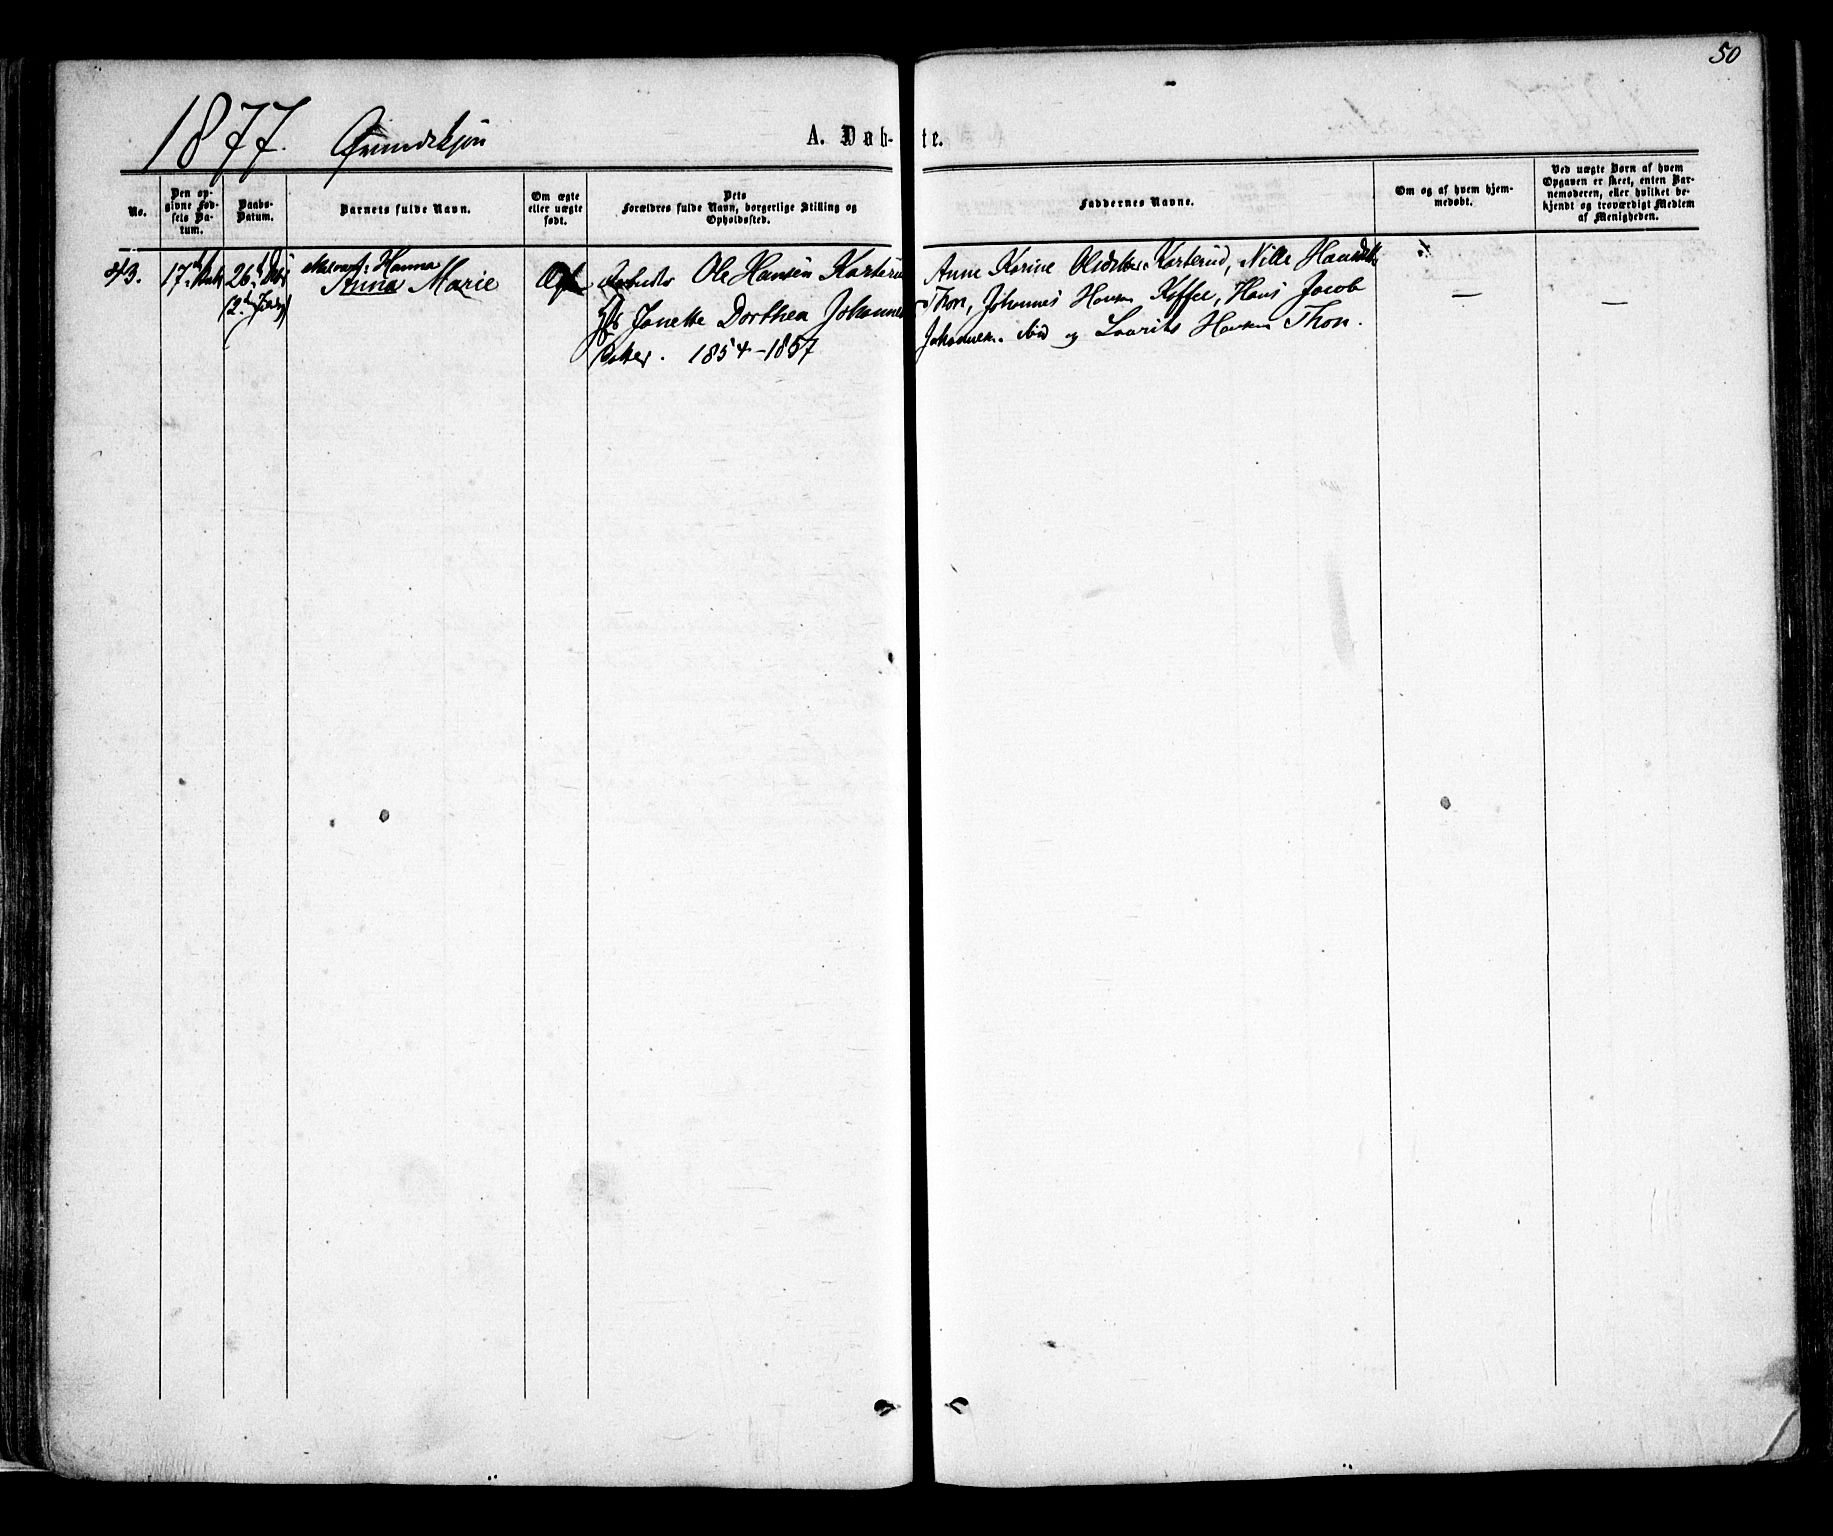 50
1877. Qvindekjøn
A. Døb-te.
No.
Den op-
givne Fød-
sels Da-
tum.
Daabs-
Datum.
Barnets fulde Navn.
Om ægte
eller uægte
født.
Dets
Forældres fulde Navn, borgerlige Stilling og
Opholdssted.
Faddernes Navne.
Om og af hvem hjem-
medøbt.
Ved uægte Børn af hvem
Opgaven er skeet, enten Bar-
nemoderen, eller hvilket be-
kjendt og troværdigt Medlem
af Menigheden.
43.
17
26
(2
Hanna
Anna Marie
Ægte
Ole Hansen
Janette Dorthea
datter. 1854-1857
Anne Karine Olsdatter Karterud, Nille
Thon, Johannes Hansen Koffee, Hans Jacob
ibid og Laurits Hansen Thon.
—
—